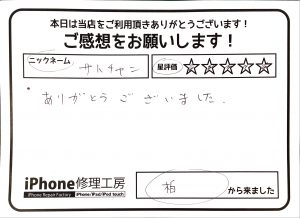 本日は当店をご利用頂きありがとうございます!
ご感想をお願いします!
ニックネーム
サトチャン
星評価 ☆☆☆☆☆
ありがとうございました。
iPhone修理工房
iPhone Repair Factory iPhone/iPad/iPod touch
柏 から来ました